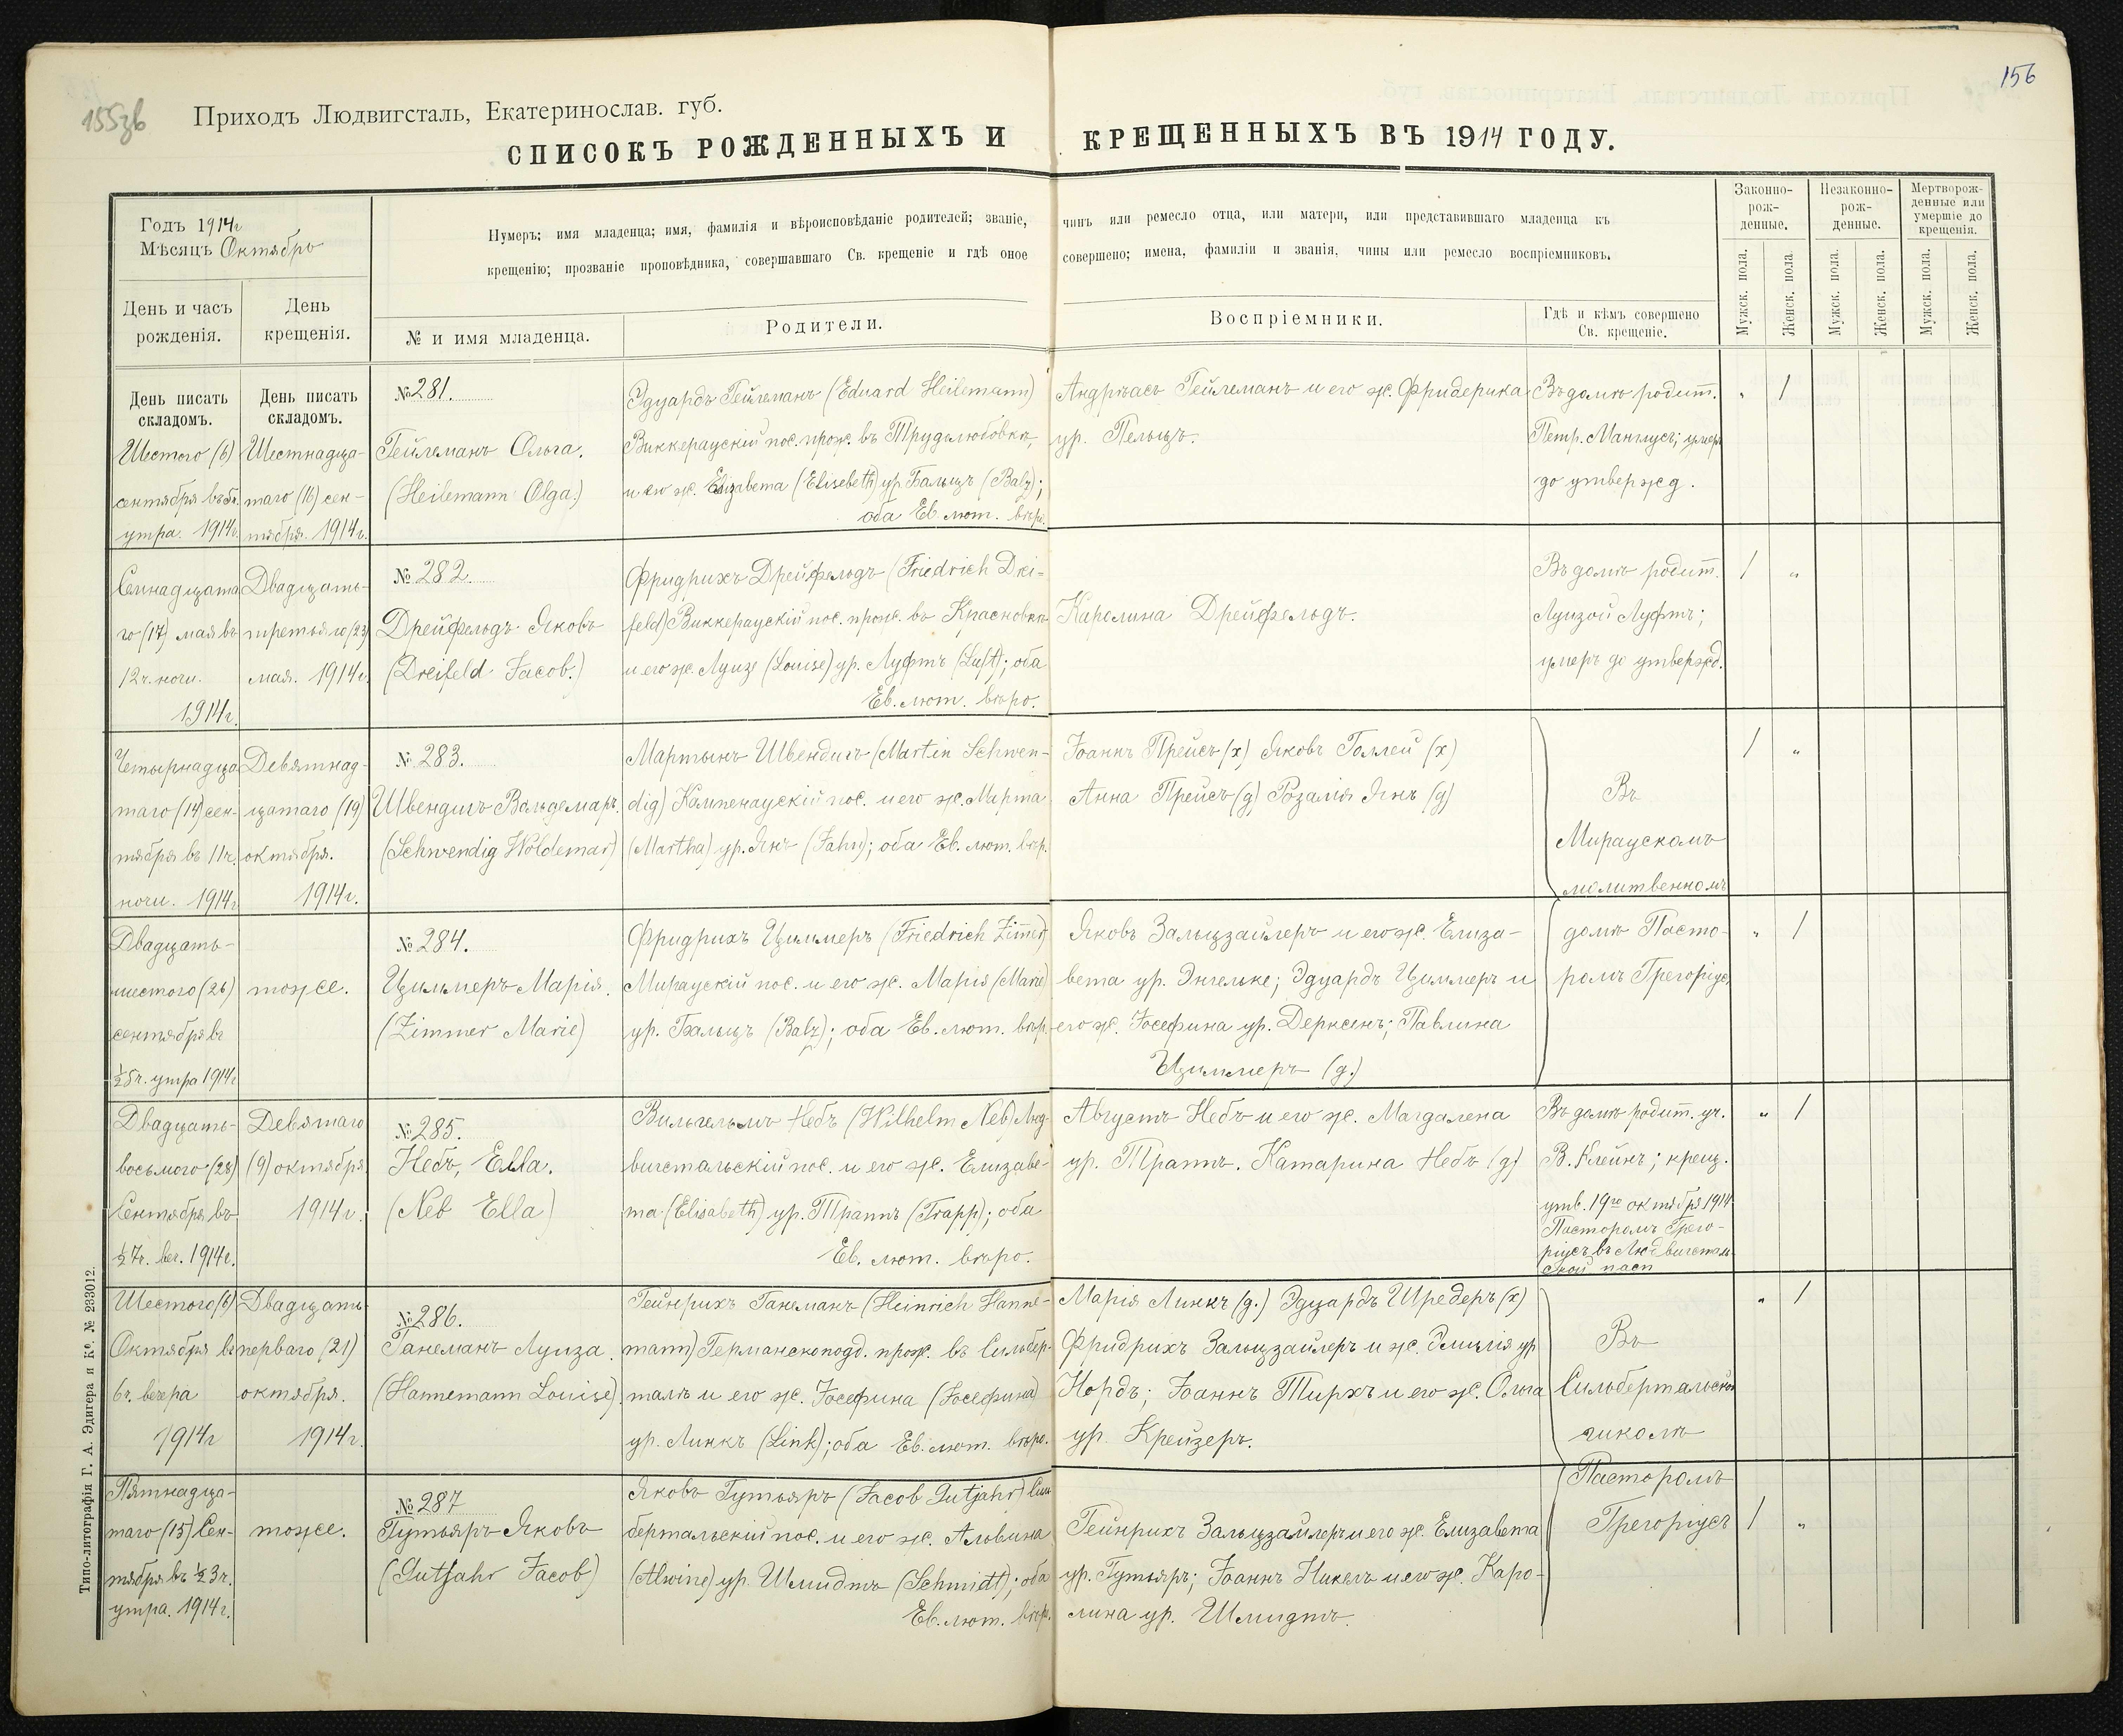 155зв
156
Приходъ Людвигсталь, Екатеринослав. губ.
СПИСОКЪ РОЖДЕННЫХЪ И КРЕЩЕННЫХЪ ВЪ 1914 ГОДУ.
Годъ 1914г
Мѣсяцъ Октябрь
Нумеръ; имя младенца; имя, фамилія и вѣроисповѣданіе родителей; званіе, чинъ или ремесло отца, или матери, или представившаго младенца къ
крещенію; прозваніе проповѣдника, совершавшаго Св. крещеніе и гдѣ оное совершено; имена, фамиліи и званія, чины или ремесло воспріемниковъ.
Законно-
рож-
денные.
Незаконно-
рож-
денные.
Мертворож-
денные или
умершіе до
крещенія.
День и часъ
рожденія.
День
крещенія.
№ и имя младенца.
Родители.
Воспріемники.
Гдѣ и кѣмъ совершено
Св. крещеніе.
Мужск. пола.
Женск. пола.
Мужск. пола.
Женск. пола.
Мужск. пола.
Женск. пола.
День писать
складомъ.
Шестого (6)
сентября
утра. 1914г.
День писать
складомъ.
Шестнадца-
таго (16) сен-
тября. 1914г.
№ 281.
Гейлеманъ Ольга.
(Heilemann Olga.)
Эдуардъ Гейлеманъ (Eduard Heilemann)
Виккерауский пос. прож. въ Трудолюбовкѣ,
и его ж. Елизабета (Elisebeth) ур. Бальцъ (Balz);
оба Ев. лют. вѣро.
Андрѣасъ Гейлеманъ и его ж. Фридерика
ур. Пельцъ.
Въ домѣ родит.
Петр. Манглусъ; умер.
до утвержд.
" 1
Семнадцата
го (17) мая въ
12ч. ночи.
1914г.
Двадцать-
третьяго (23)
мая. 1914г.
№ 282.
Дрейфельдъ Яковъ
(Dreifeld Jacob.)
Фридрихъ Дрейфельдъ (Friedrich Drei=
feld) Виккерауский пос. прож. въ Красновкѣ
и его ж. Луизе (Louise) ур. Луфтъ (Luft); оба
Ев. лют. вѣро.
Каролина Дрейфельдъ.
Въ домѣ родит.
Луизой Луфтъ;
умеръ до утвержд.
1 "
Четырнадца
таго (14) сен-
тября въ 11ч.
ночи. 1914г
Девятнад-
цатаго (19)
октября.
1914г.
№ 283.
Швендигъ Вольдемаръ.
(Schwendig Woldemar)
Мартынъ Швендигъ (Martin Schwen-
dig) Кампенауский пос. и его ж. Марта
(Martha) ур. Янъ (Jahn); оба Ев. лют. вѣр.
Іоаннъ Прейсъ (х) Яковъ Голлей (х)
Анна Прейсъ (д) Розалія Янъ (д)
Въ
Мираускомъ
молитвенномъ
1 "
Двадцать-
шестого (26)
сентября въ
½5ч. утра 1914г
тоже.
№ 284.
Циммеръ Марія.
(Zimmer Marie)
Фридрихъ Циммеръ (Friedrich Zimmer)
Мирауский пос. и его ж. Марія (Marie)
ур. Бальцъ (Balz); оба Ев. лют. вѣр.
Яковъ Зальцзайлеръ и его ж. Елиза-
бета ур. Энгельке; Эдуардъ Циммеръ и
его ж. Іосефина ур. Дерксенъ; Павлина
Циммеръ (д.)
домѣ Пасто-
ромъ Грегоріусъ
" 1
Двадцать-
восьмого (28)
Сентября въ
½7ч. веч. 1914г.
Девятаго
(9) октября
1914г.
№ 285.
Небъ, Елла.
(Neb Ella)
Вильгельмъ Небъ (Wilhelm Neb) Люд-
вигстальский пос. и его ж. Елизабе-
та (Elisabeth) ур. Траппъ (Trapp); оба
Ев. лют. вѣро.
Августъ Небъ и его ж. Магдалена
ур. Траппъ. Катарина Небъ (д)
Въ домѣ родит. уч.
В. Клейнъ; крещ.
утв. 19го октября 1914
Пасторомъ Грего-
ріусъ въ Людвигсталь-
ской паст
" 1
Шестого (6)
Октября въ
6ч. вечера
1914г
Двадцать-
перваго (21)
октября.
1914г.
№ 286.
Ганеманъ Луиза.
(Hannemann Louise).
Гейнрихъ Ганеманъ (Heinrich Hanne-
mann) Германскопод. прож. въ Сильбер-
талѣ и его ж. Іосефина (Іосефина)
ур. Линкъ (Link); оба Ев. лют. вѣро.
Марія Линкъ (д.) Эдуардъ Шредеръ (х)
Фридрихъ Зальцзайлеръ и ж. Эмилія ур
Нордъ; Іоаннъ Тирхъ и его ж. Ольга
ур. Крейзеръ.
Въ
Сильбертальской
школѣ
" 1
Пятнадца-
таго (15) Сен-
тября въ ½3ч.
утра. 1914г.
тоже.
№ 287
Гутъяръ Яковъ
(Gutjahr Jacob)
Яковъ Гутьяръ (Jacob Gutjahr) Силь
бертальский пос. и его ж. Альвина
(Alwine) ур. Шмидтъ (Schmidt); оба
Ев. лют. вѣр.
Гейнрихъ Зальцзайлеръ и его ж. Елизабета
ур. Гутьяръ; Іоаннъ Никель и его ж. Каро-
лина ур. Шмидтъ.
Пасторомъ
Грегоріусъ
1 "
Типо-литографія Г. А. Эдигера и Ко. № 233012.